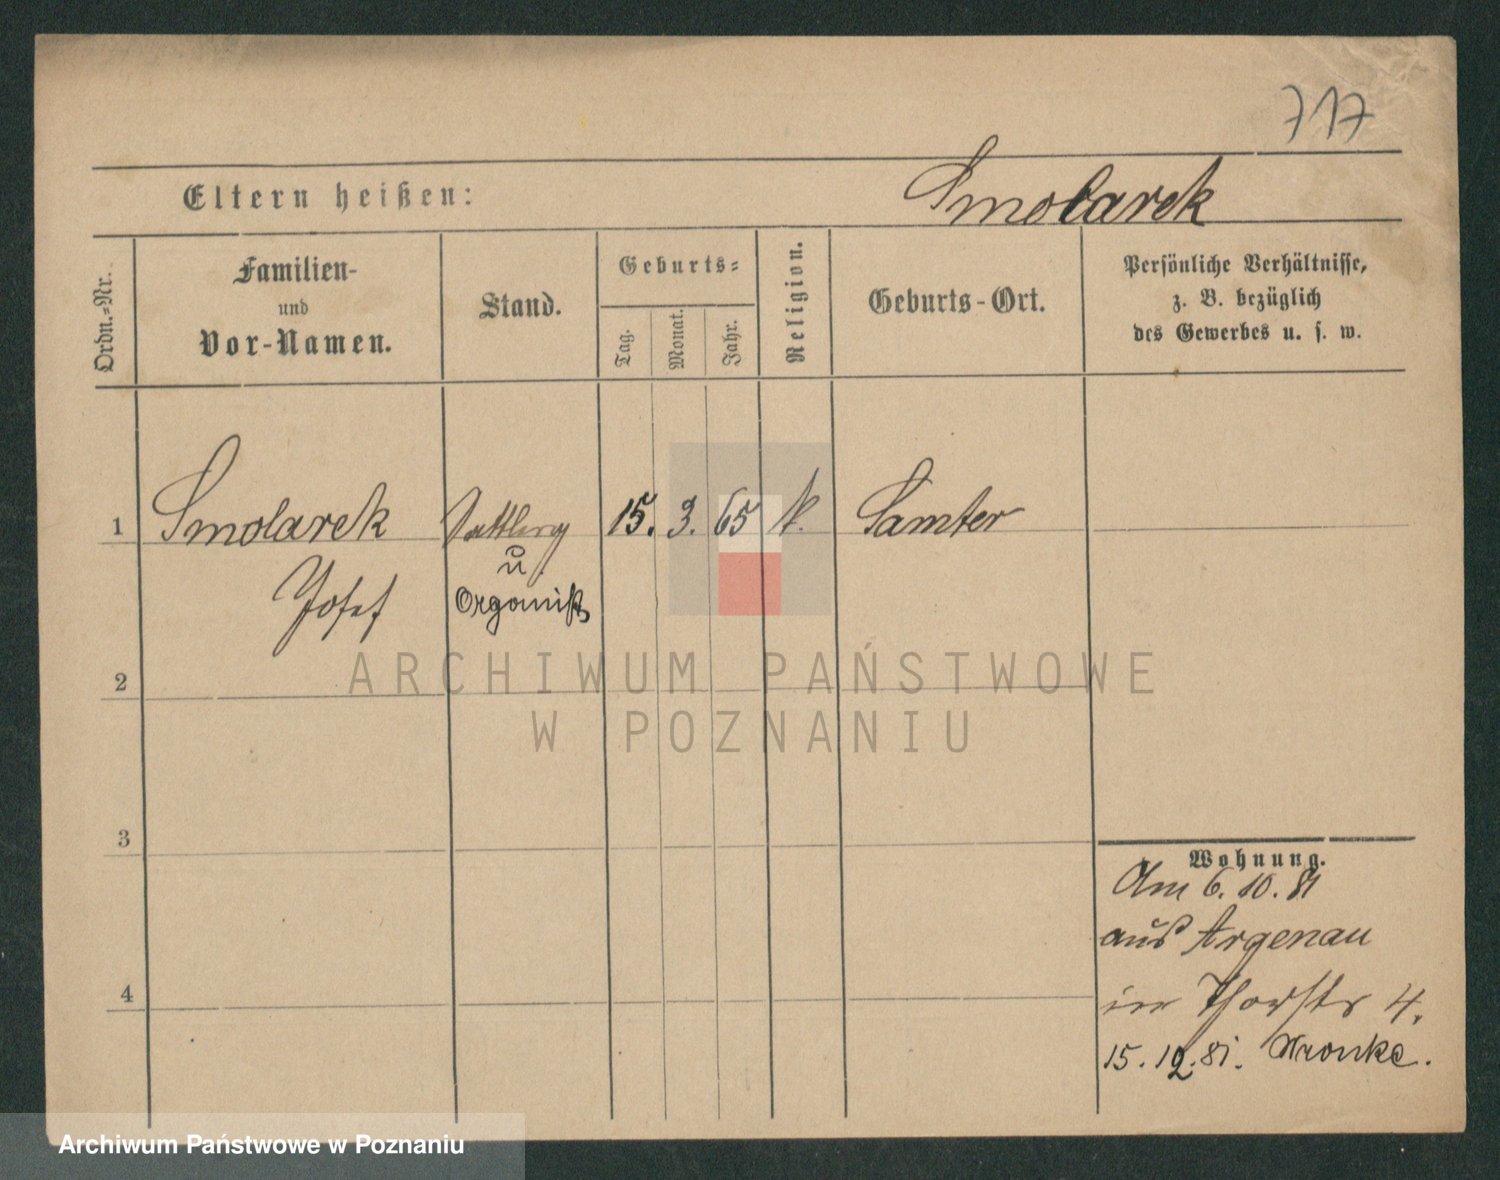 717
Eltern heißen: Smolarek
Ordn.-Nr.
Familien-
und
Vor-Namen.
Stand.
Geburts-
Tag.
Monat.
Jahr.
Religion.
Geburts-Ort.
Persönliche Verhältnisse,
z. B. bezüglich
des Gewerbes u. s. w.
1 Smolarek 15. 3. 65 k. Samter
u.
Josef Organist
2
3
4
Wohnung.
Am 6. 10. 81
aus Argenau
in 4.
15. 12. 81. Wronke.
ARCHIWUM PAŃSTWOWE
W POZNANIU
Archiwum Państwowe w Poznaniu